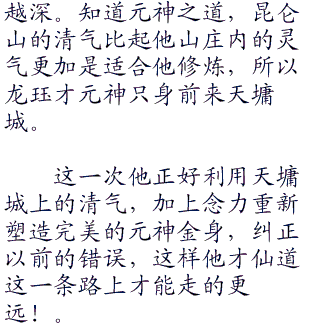 越深。知道元神之道，昆仑
山的清气比起他山庄内的灵
气更加是适合他修炼，所以
龙珏才元神只身前来天墉
城。
　　这一次他正好利用天墉
城上的清气，加上念力重新
塑造完美的元神金身，纠正
以前的错误，这样他才仙道
这一条路上才能走的更
远！。